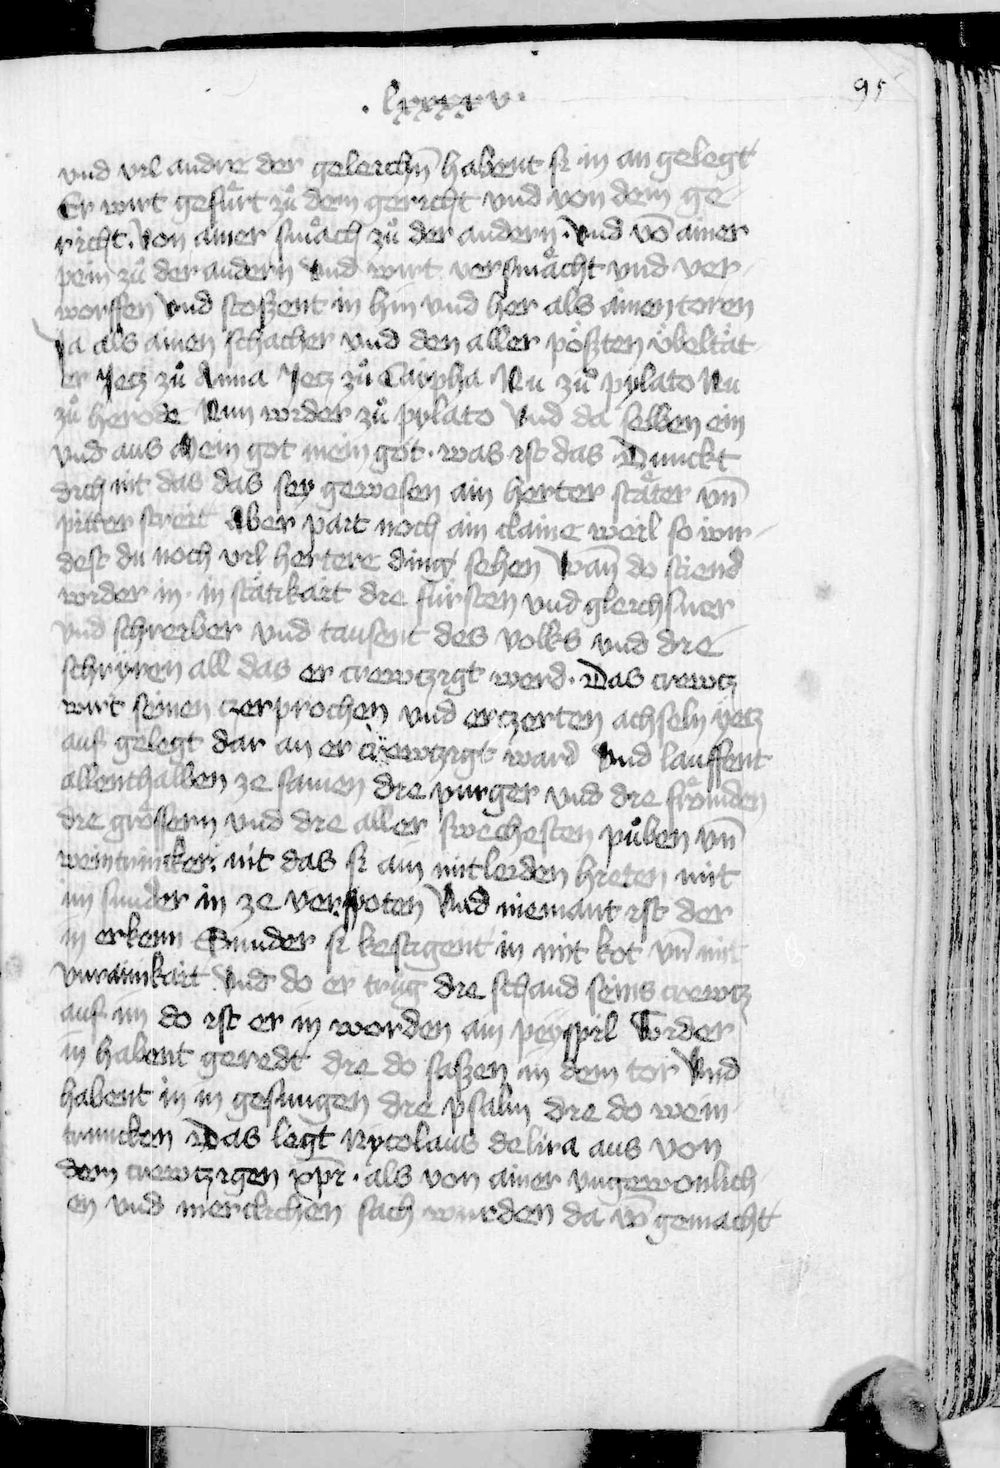 . lxxxxv .
95
vnd vil andre der geleichñ habent si in an gelegt
Er wirt gefu̇rt zů dem gericht vnd von dem ge-
richt. Von ainer smäch zů der andern. Vnd vō ainer
pein zů der andern Vnd wirt versmächt vnd ver-
worffen Vnd stoßent in hin vnd her als ainen toren
Ja als ainen schacher vnd den aller pößten übeltät-
er Jetz zů Anna Jetz zů Caipha. Nu zů pylato Nu
zů herode Nun wider zů pylato Vnd da selben ein
vnd aus Mein got mein got. was ist das Dunckt
dich nit das das sey gewesen ain herter stäter vn̄
pitter streit Aber part noch ain claine weil so wir-
dest du noch vil hertere ding sehen Wañ do stiend
wider in. in stätikait die fürsten vnd gleichsner
vnd schreiber vnd tausent des volks vnd die
schryren all das er crewtzigt werd. Das crewtz
wirt seinen czerprochen vnd erczerten achseln yetz
auf gelegt dar an er crewtzigt ward Vnd lauffent
allenthalben ze samen die purger vnd die frömden
die grössern vnd die aller swechesten půben vn̄
weintrincker. nit das si ain mitleiden hieten mit
im sunder in ze verspoten Vnd niemant ist der
in erkenn Sunder si bestigent in mit kot vn̄ mit
vnrainkait Vnd do er trug die schand seins crewtz
auf im do ist er in worden ain peyspil Wider
in habent geredt die do saßen in dem tor Vnd
habent in in gesungen die psalm die do wein
truncken Das legt Nycolaus delira aus von
dem crewtzigen xp̄i. als von ainer vngewonlich-
en vnd mercklichen sach wurden da vō gemacht